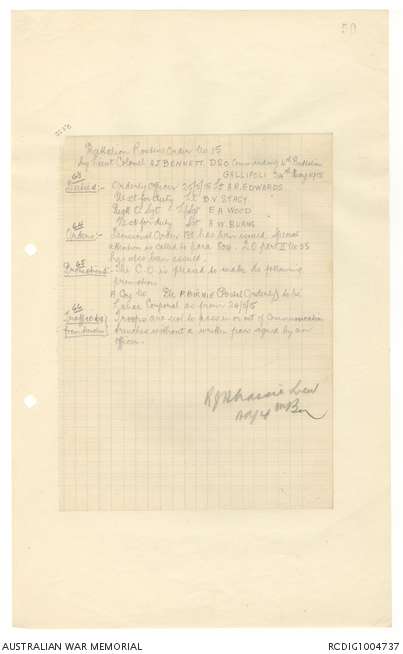 50
Battalion Routine Order No 15
by Lieut Colonel A J BENNETT, DSO Commanding Battalion
GALLIPOLI 24th May 1915
63
Duties:- Orderly Officer 25/5/15 Lt A.R. EDWARDS
Next for duty Lt B V STACY
E A WOOD
Next for duty Sgt A W BURNS
64
Orders:- Divisional Order has been issued. Special
attention is called to para
has also been issued.
65
Promotions:- The C.O. is pleased to make the following
promotions
A Coy No Pte (Postal Orderly) to be
Lance Corporal as from 24/5/15
66
Troops are not to pass in or out of Communication
trenches without a written pass signed by an
officer.
Lieut
AUSTRALIAN WAR MEMORIAL
RCDIG1004737